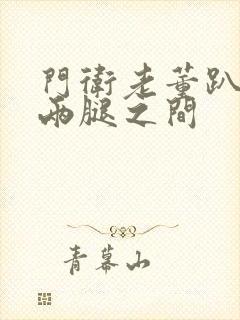 門衛老董趴
兩腿之間
青幕山